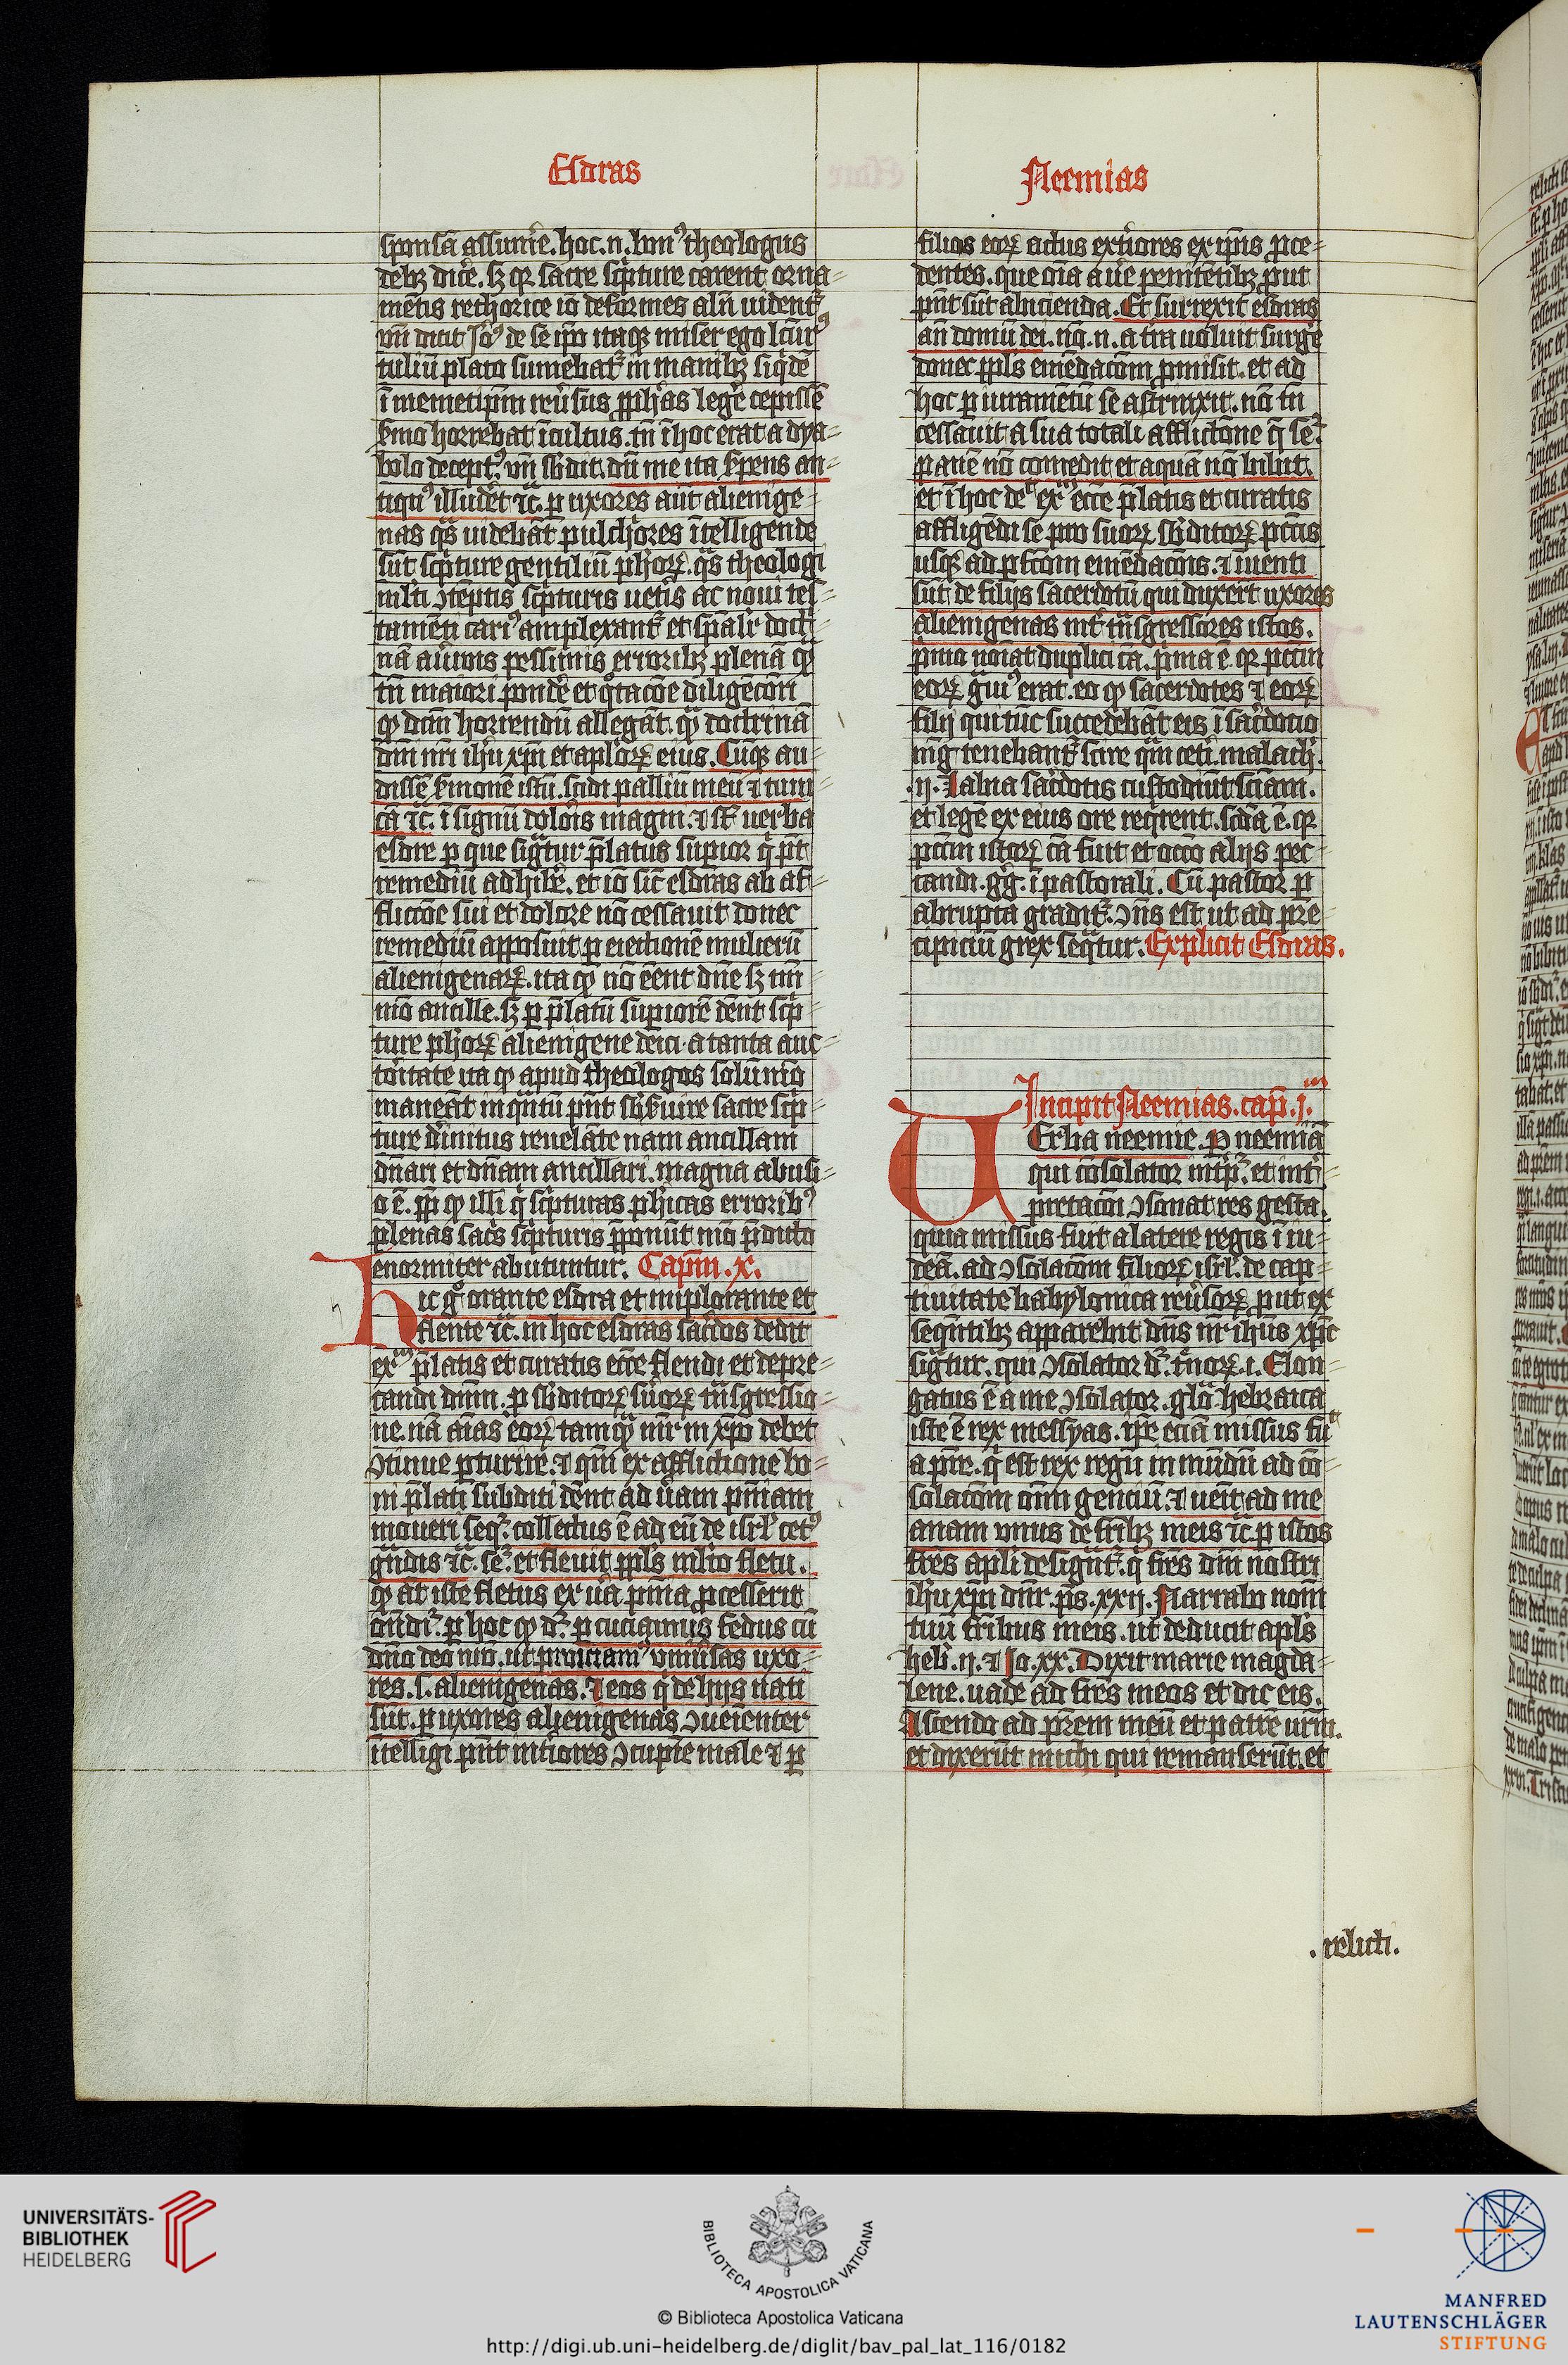 Esdras
sponsā assum̄e. hoc. n. bon⁹ theologus
debꝫ dic̄e. sꝫ qꝛ sacre sc̄pture carent orna-
mētis rethorice iō deformes alīn uidentᷣ
itaqꝫ miser ego
tuliū plato sumebatᷣ in manibꝫ siq̄dē
horrebat īcultus. tn̄ ī hoc erat a dya-
bolo decept⁹. vn̄ sb̄dit. dū me ita ẜpens an-
tiqu⁹ illud̄et ⁊c̄. ꝑ uxores aūt alienige-
nas qᷓs uidebāt pulchͥores ītelligende
sūt sc̄pture gentiliū ph̄oꝝ. qᷓs theologi
ml̄ti ꝯtēptis sc̄pturis uet̄is ac noui tes-
tamēti cari⁹ amplexantᷣ et
pessimis erroribꝫ plenā
tn̄ maiori pond̄e et
horrendū allegāt. doctrinā
dn̄i nr̄i ih̄u xp̄i et apl̄oꝝ eius. Cūqꝫ au
dissē ẜmonē istū. scidi palliū meū ⁊ tuni
cā ⁊c̄. ī signū dolōis magni. ⁊ sūt uerba
esdre ꝑ que sigᷓtur p̄latus supior q̄ p̄t
remediū adhib̄e. et iō sic̄ esdras ab af-
flicc̄oe sui et dolore nō cessauit donec
remediū apposuit ꝑ eiectionē mulierū
alienigenaꝝ. ita ꝙ nō ēent dn̄e sꝫ im̄
mō ancille. sꝫ ꝑ p̄latū supiorē dēnt sc̄p
ture ph̄oꝝ alienigene deici. a tanta auc-
toritate ita ꝙ apud theologos solūmō
maneāt inqᷓntū pn̄t sb̄ẜuire sacre sc̄p-
ture diuinitus reuelāte nam ancillam
dn̄ari et dn̄am ancillari. magna abusi-
o ē. ꝙ illi q̄ sc̄pturas ph̄icas errorib⁹
plenas sac̄s sc̄pturis p̄ponūt mō p̄dicto
enormiter abutuntur. Capm̄. x.
Hic gͦ orante esdra et implorante et
flente ⁊c̄. in hoc esdras sac̄dos dedit
exᵐ p̄latis et curatis ecc̄e flendi et depre-
candi dn̄m. ꝓ sb̄ditoꝝ suoꝝ tn̄sgressio-
ne. nā aīas eoꝝ tamqᷓ mr̄ in xp̄o debet
ꝯtinue ꝑturire. ⁊ qm̄ ex afflictione bo-
ni p̄lati subditi dēnt ad ūam pn̄iam
moueri seqᷣ. collectus ē ad eū de isrl̄ cet⁹
gᷓndis ⁊c̄. seᷣ. et fleuit ppl̄s ml̄to fletu.
ꝙ āt iste fletus ex ūa pn̄ia ꝓcesserit
ōndiᷣ. ꝑ hoc ꝙ dᷣ. ꝑcuciamus fedus cū
dn̄o deo nr̄o. ut proiciam⁹ vniūsas uxo-
res. s. alienigenas. ⁊ eos q̄ de hijs nati
sūt. ꝑ uxores alienigenas ꝯueienter
ītelligi pn̄t int̄iores ꝯcupīe male ⁊ ꝑ
Neemias
filios eoꝝ actus ext̄iores ex ip̄is ꝓce-
dentes. que oīa a ūe penitētibꝫ ꝓut
pn̄t sūt abicienda. Et surrexit esdras
an̄ domū dei. nō. n. a tr̄a uoluit surḡe
donec ppl̄s emēdac̄om ꝓmisit. et ad
hoc ꝑ iuramētū se astrinxit. nō tn̄
cessauit a sua totali afflictōne q̄ seᷣ.
panē nō comedit et aquā nō bibit.
et ī hoc deᵗ exᵐ ecc̄e p̄latis et curatis
affligēdi se pro suoꝝ sb̄ditoꝝ pctīs
usqꝫ ad ꝑfc̄om emēdac̄ois. ⁊ īuenti
sūt de filijs sacerdotū qui duxer̄t uxores
alienigenas int̄ tn̄sgressores istos.
p̄mo noīat duplici cā. p̄ma ē. qꝛ pctm̄
eoꝝ gᷓui⁹ erat. eo ꝙ sacerdotes ⁊ eoꝝ
filij qui tūc succedebāt eis ī sac̄dotio
mḡ tenebantᷣ scire qm̄ cet̄i. malach̄.
.ij. Labia sac̄dotis custodiūt sciam̄.
et legē ex eius ore reqͥrent. scd̄a ē. qꝛ
pctm̄ istoꝝ cā fuit et occō alijs pec-
candi. gg̊. ī pastorali. Cū pastor ꝑ
abrupta graditᷣ. ꝯns est ut ad pre-
cipiciū grex seqᷓtur. Explicit Esdras.
Incipit Neemias. cap̄. j.ᵐ
Uerba neemie. ꝑ neemiā
qui cōsolator int̄pᷣ. et int̄-
pretac̄oi ꝯsonat res gesta.
quia missus fuit a latere regis ī iu-
deā. ad ꝯsolac̄om filioꝝ isrl̄. de cap-
tiuitate babylonica reūsoꝝ ꝓut ex
seqn̄tibꝫ apparebit dn̄s nr̄ ih̄us xp̄c
sigᷓtur. qui ꝯsolator dᷣ. tn̄oꝝ. i. Elon-
gatus ē a me ꝯsolator. glō. hebraica
iste ē rex messyas. ip̄e eciā missus fūit
a pr̄e. q̄ est rex regū in mūdū ad cō-
solac̄om om̄i genciū ⁊ uēit ad me
anani vnus de fr̄ibꝫ meis ⁊c̄. ꝑ istos
fr̄es apl̄i designᷓtᷣ. q̄ fr̄es dn̄i nostri
ih̄u xp̄i dn̄r. ps̄. xxij. Narrabo nom̄
tuū fratribus meis. ut deducit apl̄s
heb̄. ij. ⁊ Jo. xx. Dixit marie magda-
lene. uade ad fr̄es meos et dic eis.
Ascendo ad pr̄em meū et patrē ur̄m.
et dixerūt michi qui remanserūt. et
.relicti.
UNIVERSITÄTS-
BIBLIOTHEK
HEIDELBERG
BIBLIOTECA APOSTOLICA VATICANA
© Biblioteca Apostolica Vaticana
http://digi.ub.uni-heidelberg.de/diglit/bav_pal_lat_116/0182
MANFRED
LAUTENSCHLÄGER
STIFTUNG